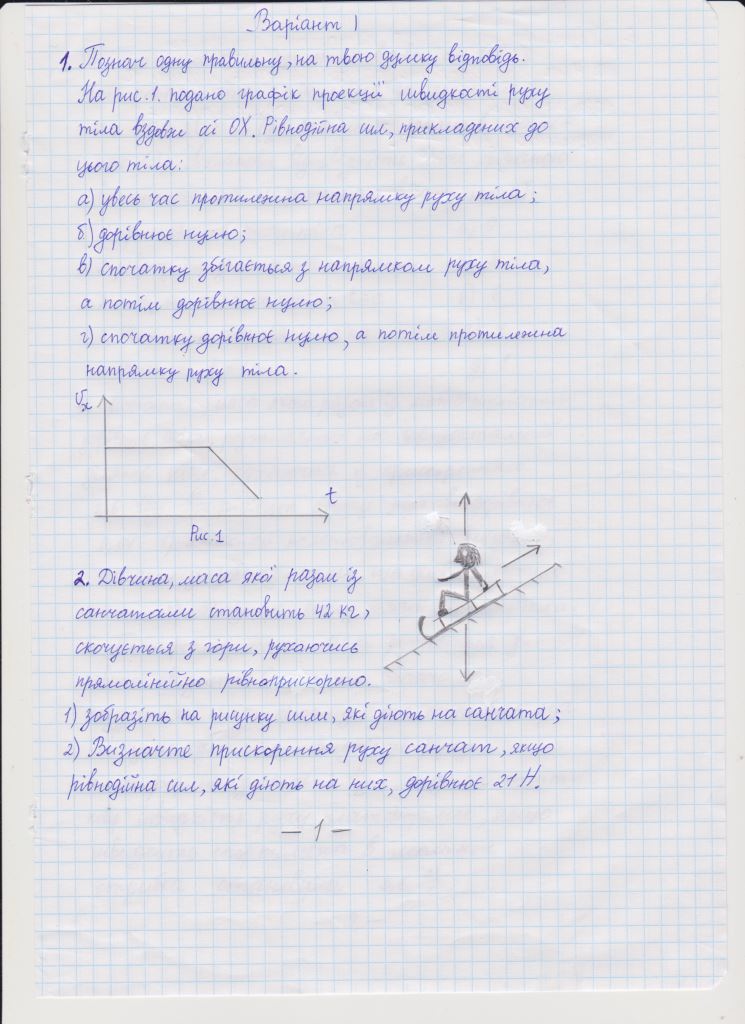 Варіант 1
1. Познач одну правильну, на твою думку відповідь.
На рис.1. подано графік проекції швидкості руху
тіла вздовж осі ОХ. Рівнодійна сил, прикладених до
цього тіла:
а) увесь час протилежна напрямку руху тіла;
б) дорівнює нулю;
в) спочатку збігається з напрямком руху тіла,
а потім дорівнює нулю;
г) спочатку дорівнює нулю, а потім протилежна
напрямку руху тіла.
υx
t
Рис.1
2. Дівчина, маса якої разом із
санчатами становить 42 кг,
скочується з гори, рухаючись
прямолінійно рівноприскорено.
1) зобразіть на рисунку сили, які діють на санчата;
2) Визначте прискорення руху санчат, якщо
рівнодійна сил, які діють на них, дорівнює 21 Н.
— 1 —